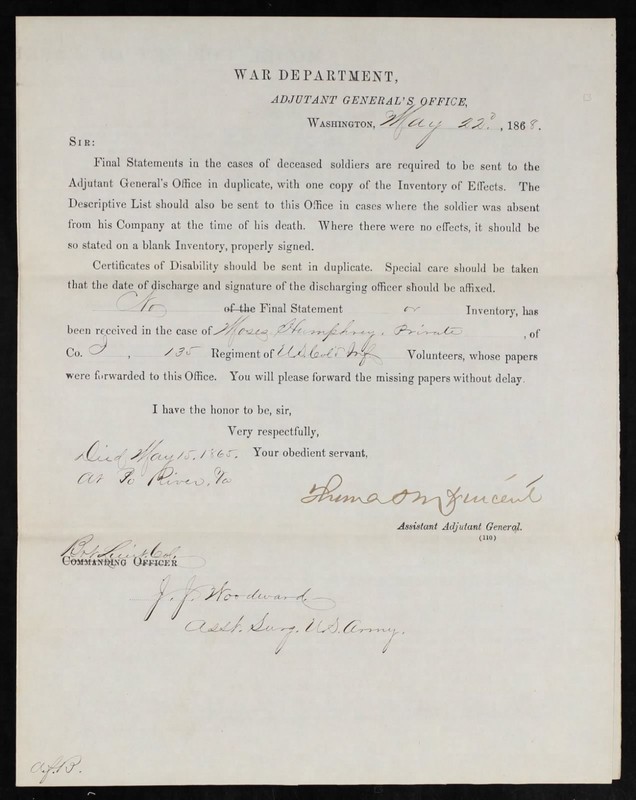 WAR DEPARTMENT,
ADJUTANT GENERAL'S OFFICE,
WASHINGTON, May 22d, 1868.
SIR:
Final Statements in the cases of deceased soldiers are required to be sent to the
Adjutant General's Office in duplicate, with one copy of the Inventory of Effects. The
Descriptive List should also be sent to this Office in cases where the soldier was absent
from his Company at the time of his death. Where there were no effects, it should be
so stated on a blank Inventory, properly signed.
Certificates of Disability should be sent in duplicate. Special care should be taken
that the date of discharge and signature of the discharging officer should be affixed.
No of the Final Statement or Inventory, has
been received in the case of Moses Humphrey, Private, of
Co. , 135 Regiment of U.S. Cold Inf Volunteers, whose papers
were forwarded to this Office. You will please forward the missing papers without delay.
I have the honor to be, sir,
Very respectfully,
Died May 15, 1865. Your obedient servant,
at Po River, Va
Thomas M Vincent
Assistant Adjutant General.
(110)
Bvt Lieut. Col.
COMMANDING OFFICER
J. J. Woodward
Asst. Surg. U.S. Army.